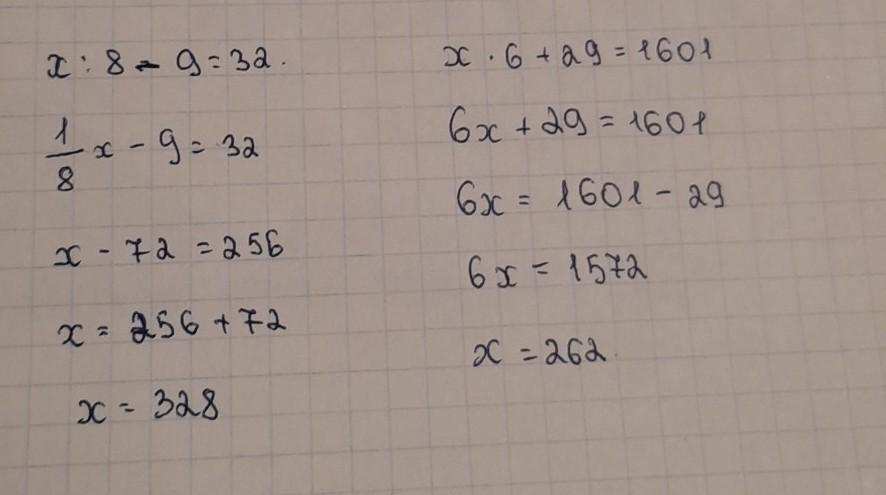 x : 8 - 9 = 32.
1/8 x - 9 = 32
x - 72 = 256
x = 256 + 72
x = 328
x · 6 + 29 = 1601
6x + 29 = 1601
6x = 1601 - 29
6x = 1572
x = 262.